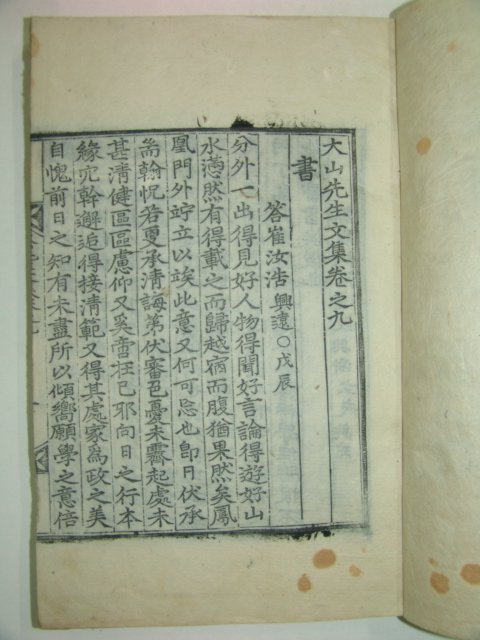 大山先生文集卷之九
書
答崔汝浩興遠○戊辰
分外一出得見好人物得聞好言論得遊好山
水懣然有得載之而歸越宿而腹猶果然矣鳳
凰門外竚立以竢此意又何可忘也卽日伏承
耑翰怳若更承淸誨第伏審邑憂未霽起處未
甚淸健區區慮仰又奚啻在己耶向日之行本
緣冗幹邂逅得接淸範又得其處家爲政之美
自愧前日之知有未盡所以傾嚮願學之意倍